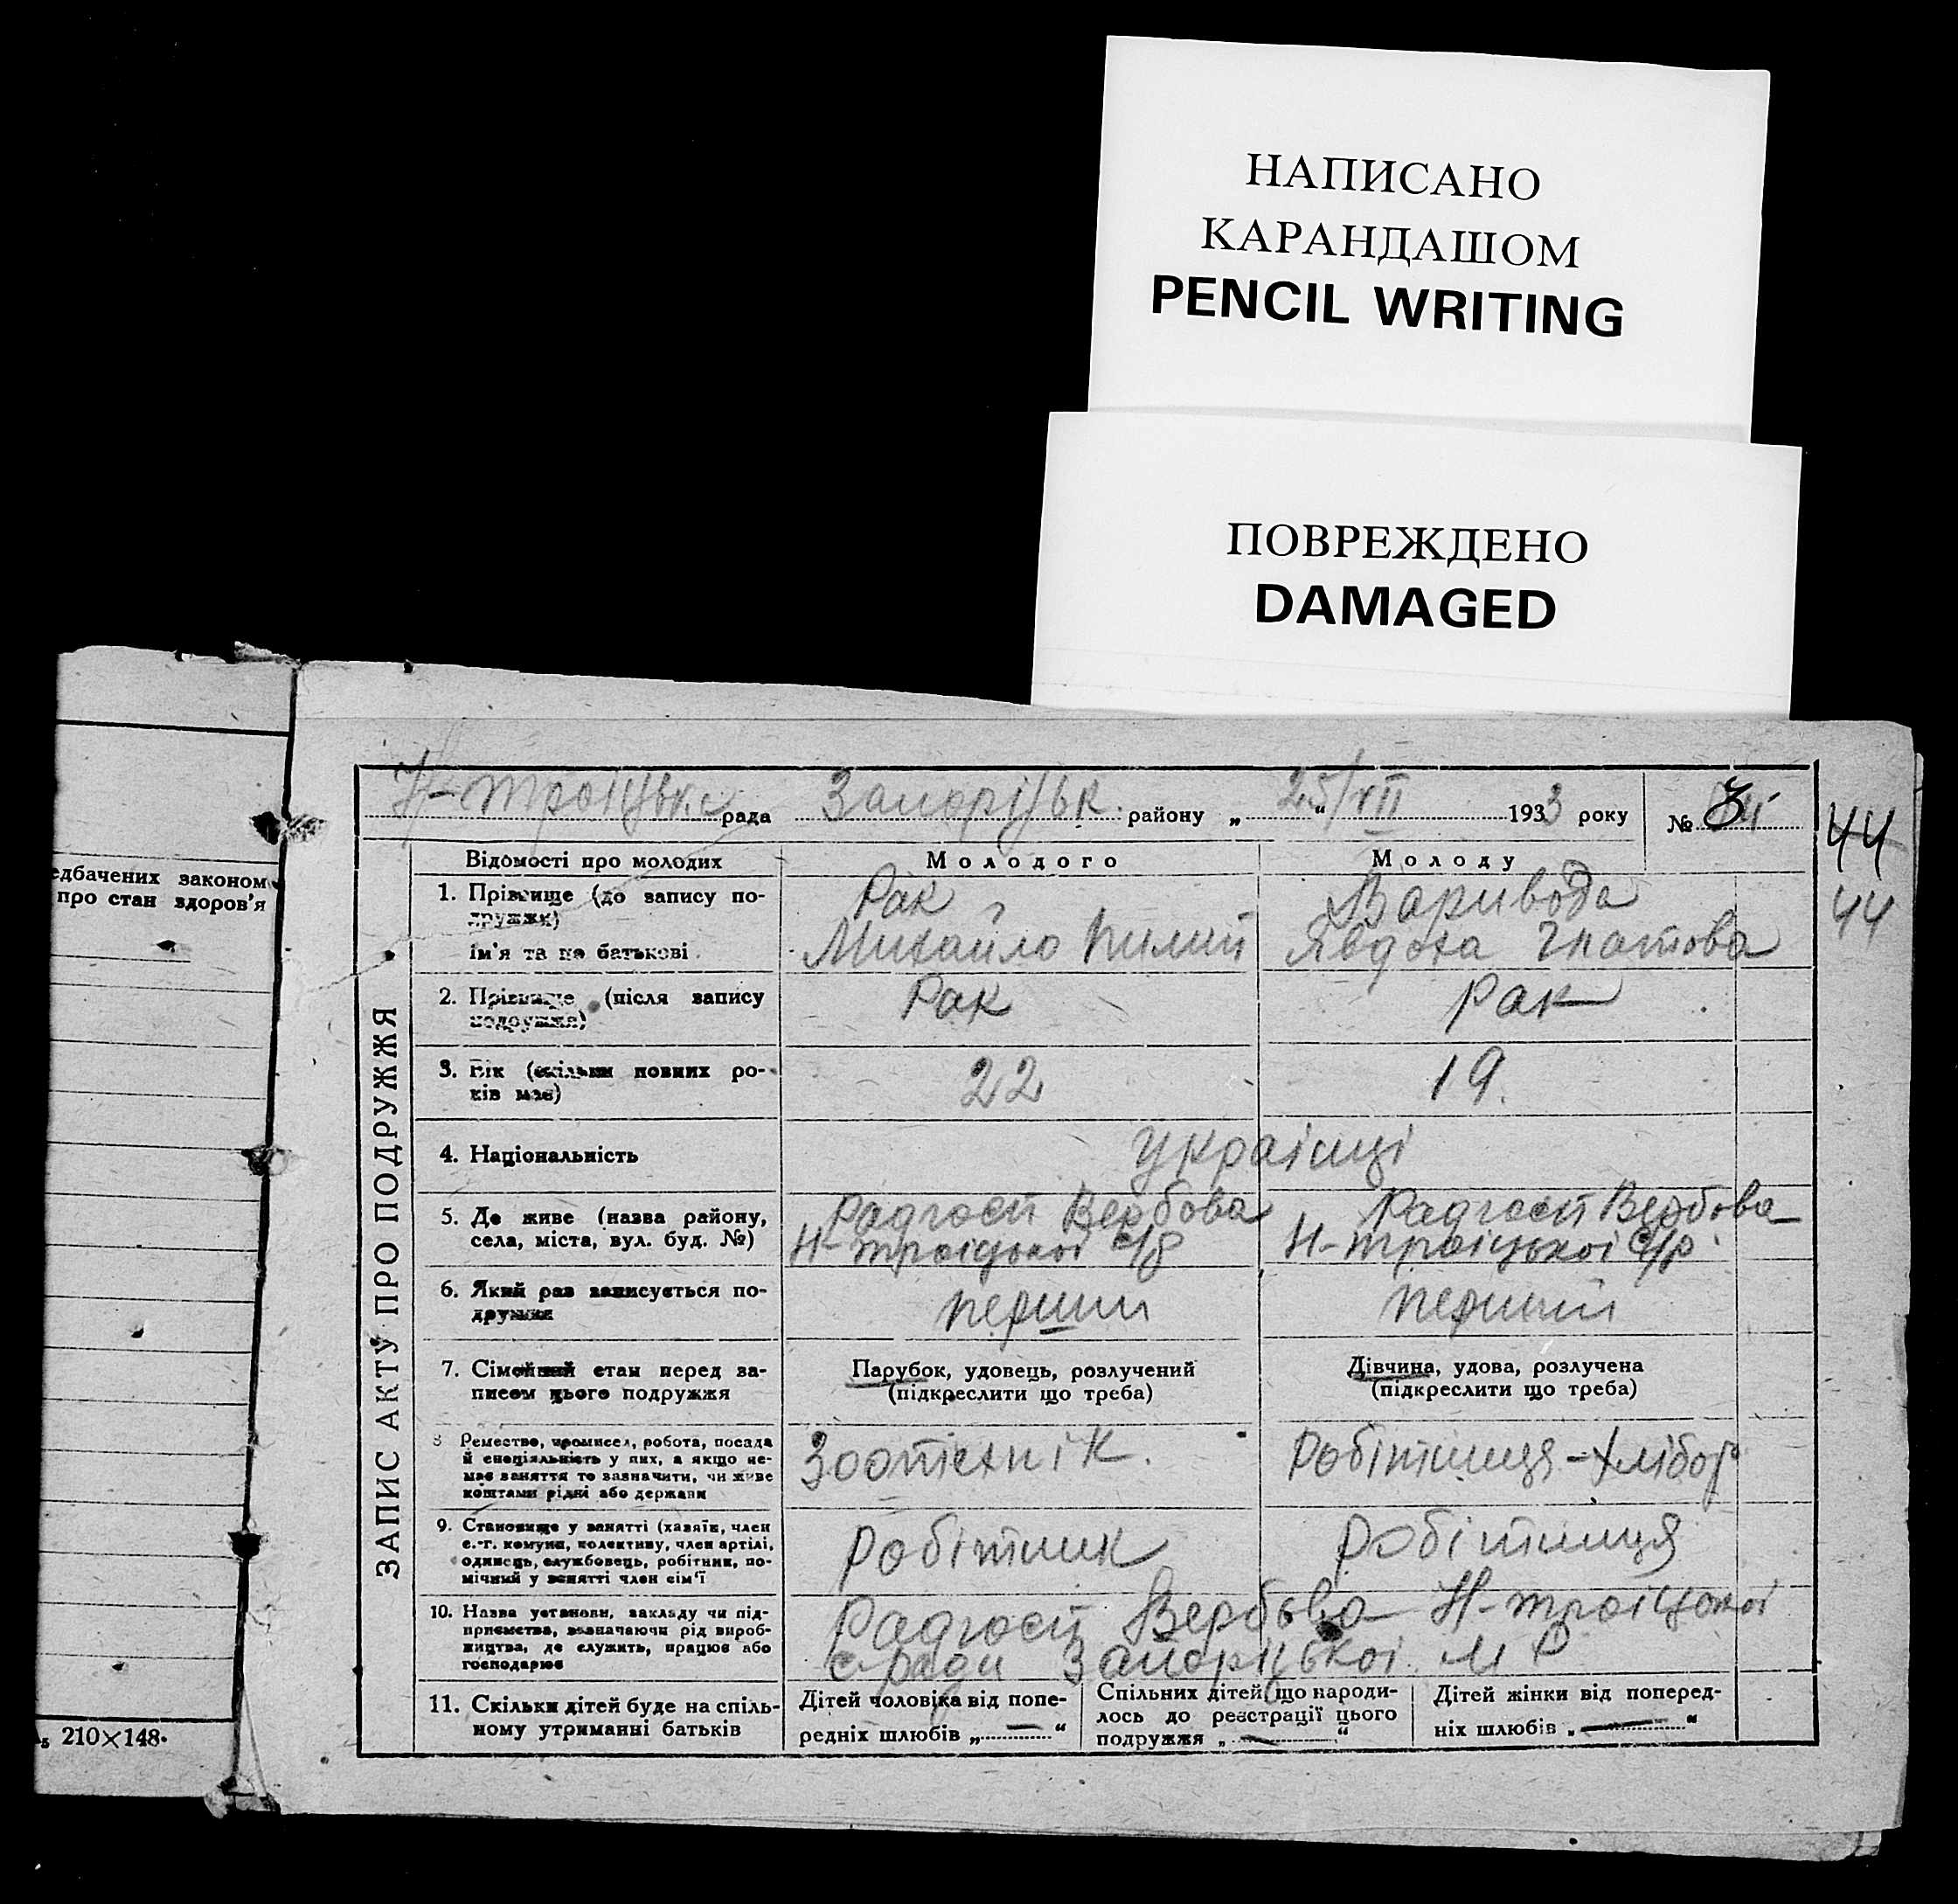 НАПИСАНО
КАРАНДАШОМ
PENCIL WRITING
ПОВРЕЖДЕНО
DAMAGED
едбачених законом
про стан здоров'я
210×148.
Н-Троіцьк. рада Запоріськ. району „25/VII“ 1933 року № 3
44
44
ЗАПИС АКТУ ПРО ПОДРУЖЖЯ
Відомості про молодих
Молодого
Молоду
1. Прізвище (до запису по-
дружжя)
Рак
Варивода
ім'я та по батькові
Михайло Пилип
Явдоха Гнатова
2. Прізвище (після запису
подружжя)
Рак
Рак
3. Вік (скільки повних ро-
ків має)
22
19.
4. Національність
Украінці
5. Де живе (назва району,
села, міста, вул. буд. №)
Радгосп Вербова
Н-Троіцькоі с/р
Радгосп Вербова
Н-Троіцькоі с/р
6. Який раз записується по-
дружжя
перший
перший
7. Сімейний стан перед за-
писом цього подружжя
Парубок, удовець, розлучений
(підкреслити що треба)
Дівчина, удова, розлучена
(підкреслити що треба)
8 Ремество, промисел, робота, посада
й спеціяльність у них, а якщо не-
має заняття то зазначити, чи живе
коштами рідні або держави
Зоотехнік.
Робітниця-хлібор
9. Становище у занятті (хазяїн, член
с.-г. комуни, колективу, член артілі,
одинець, службовець, робітник, по-
мічний у занятті член сім'ї
Робітник
Робітниця
10. Назва установи, закладу чи під-
приємства, зазначаючи рід вироб-
ництва, де служить, працює або
господарює
Радгосп Вербова Н-Троіцькоі
с-ради Запоріцькоі МР
11. Скільки дітей буде на спіль-
ному утриманні батьків
Дітей чоловіка від попе-
редніх шлюбів „—“
Спільних дітей, що народи-
лось до реєстрації цього
подружжя „—“
Дітей жінки від поперед-
ніх шлюбів „—“